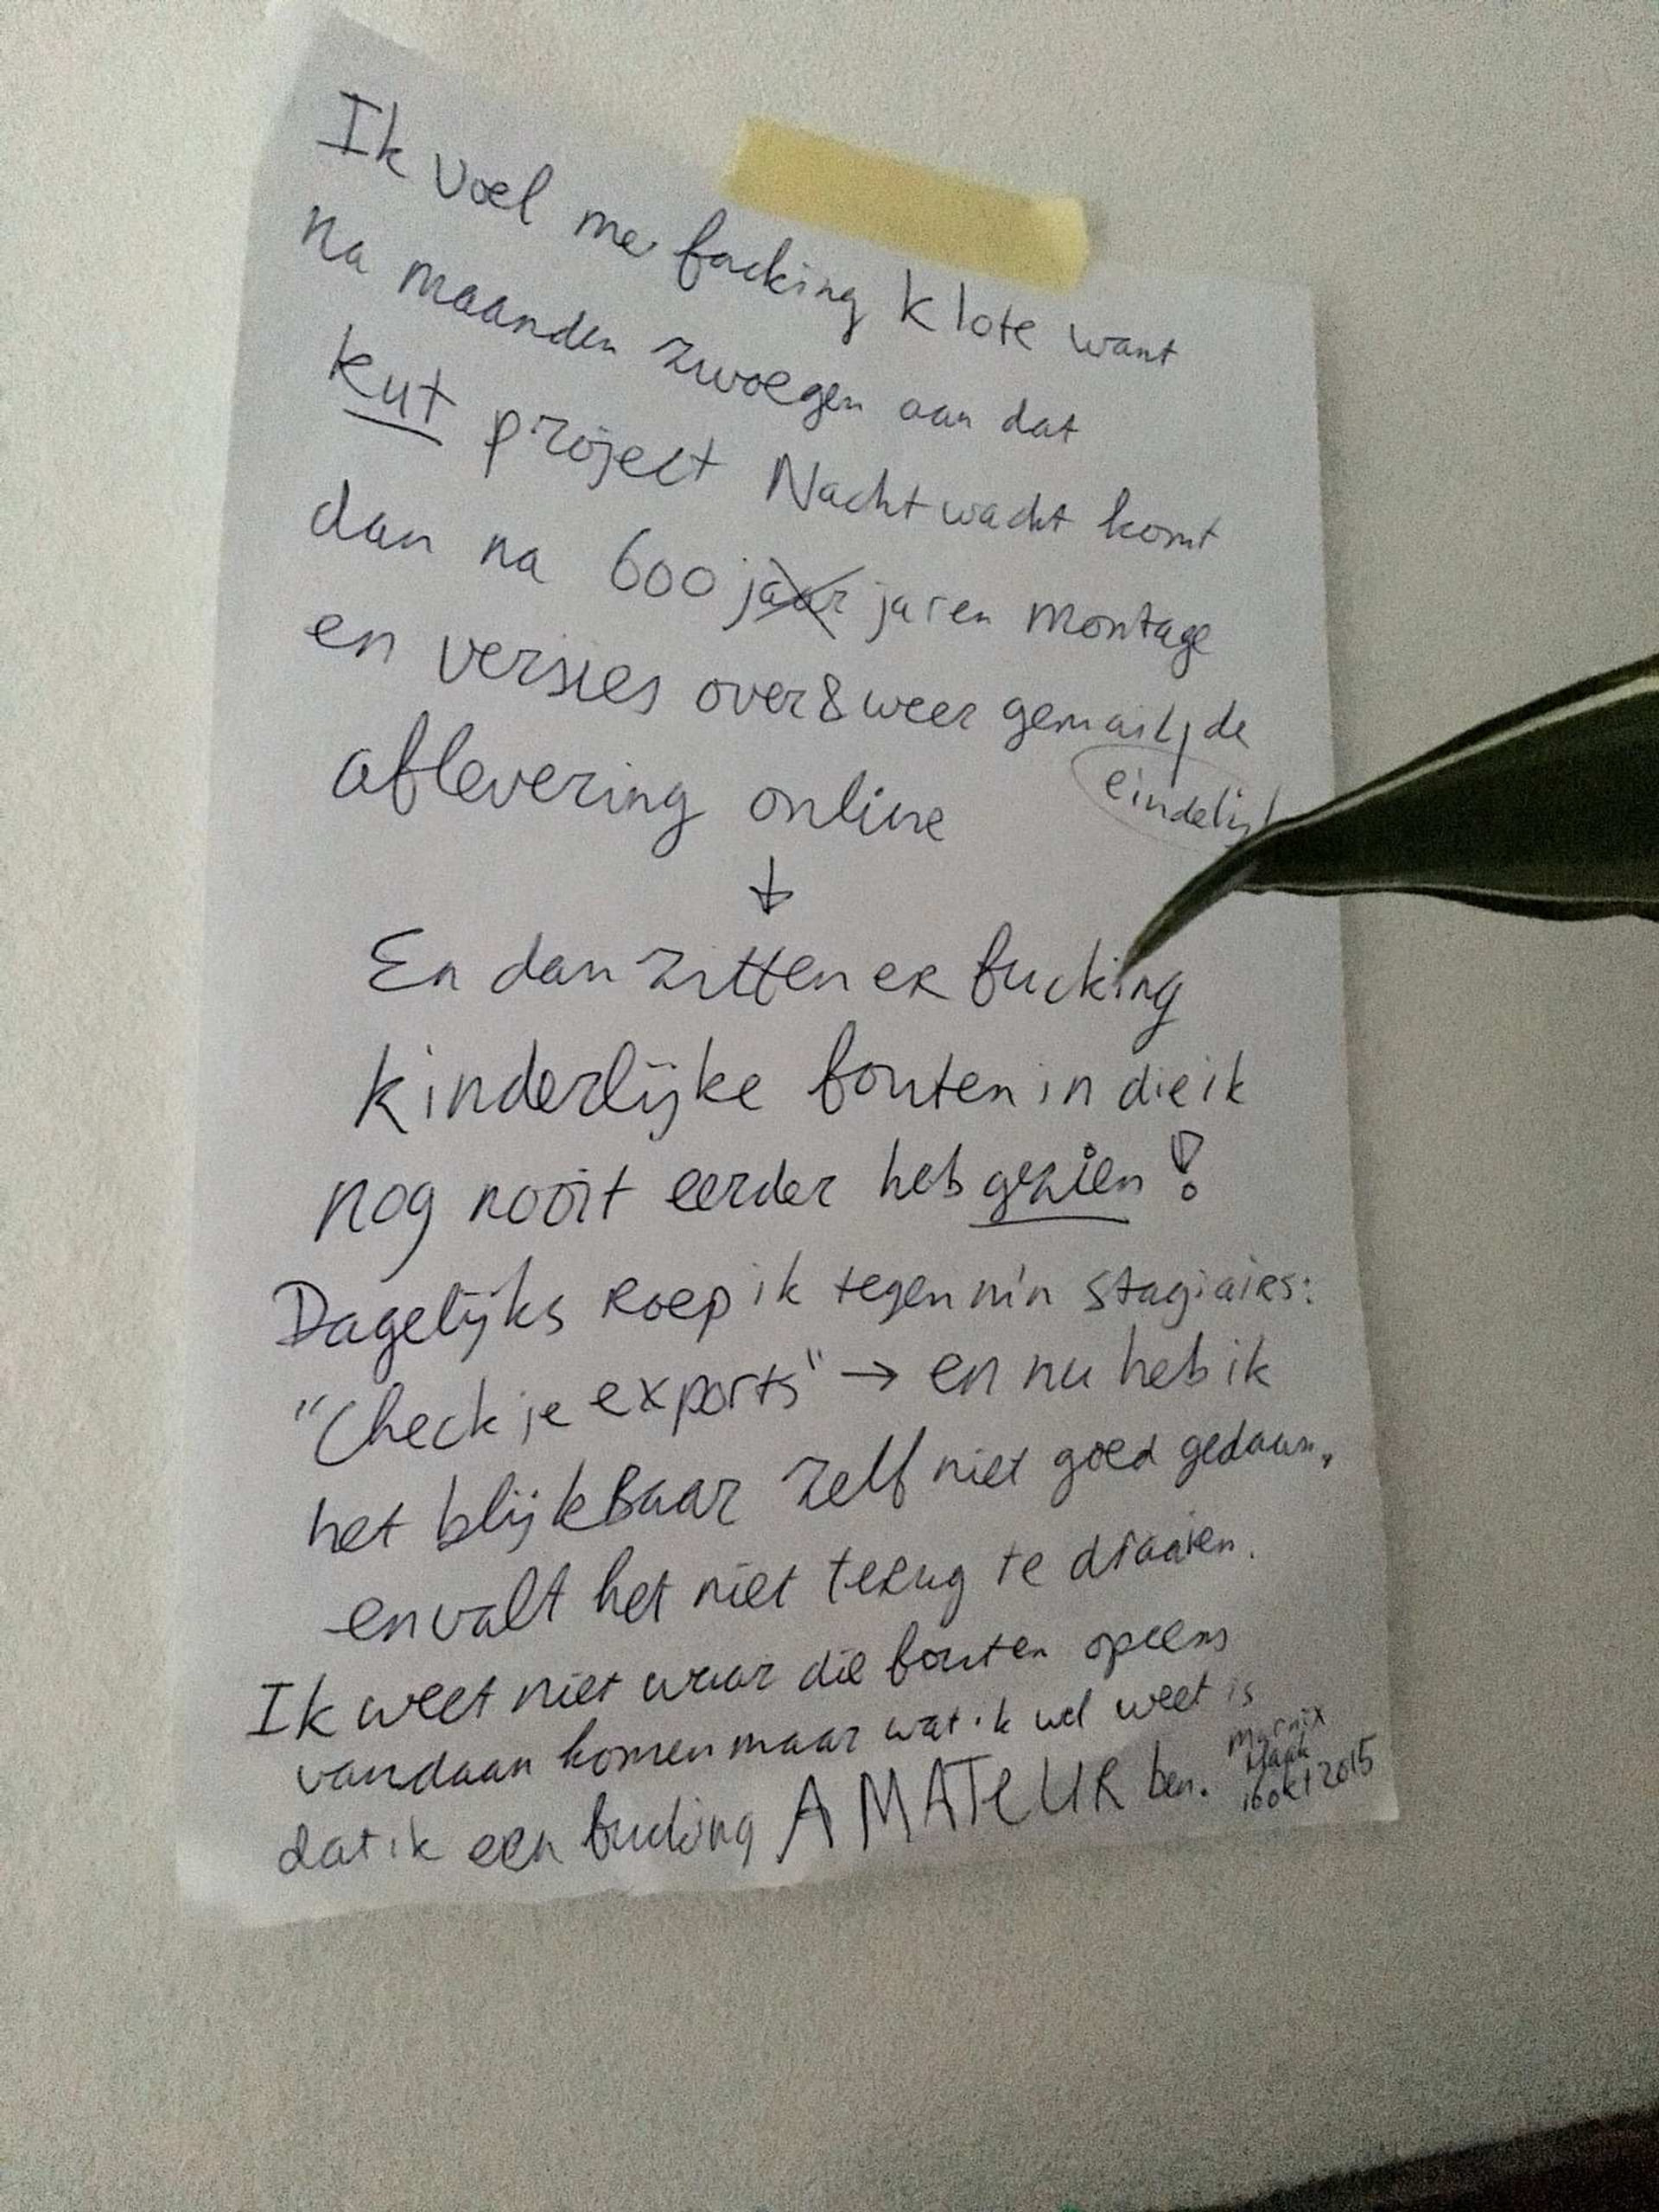 Ik voel me facking klote want
na maanden zwoegen aan dat
kut project Nachtwacht komt
dan na 600 jaar jaren montage
en versies over & weer gemaild, de
aflevering online
eindelijk
↓
En dan zitten er fucking
kinderlijke fouten in die ik
nog nooit eerder heb gezien!
Dagelijks roep ik tegen m'n stagiairs:
"Check je exports" → en nu heb ik
het blijkbaar zelf niet goed gedaan,
en valt het niet terug te draaien.
Ik weet niet waar die fouten opeens
vandaan komen maar wat ik wel weet is
dat ik een fucking AMATEUR ben.
Marnix
16 okt 2015